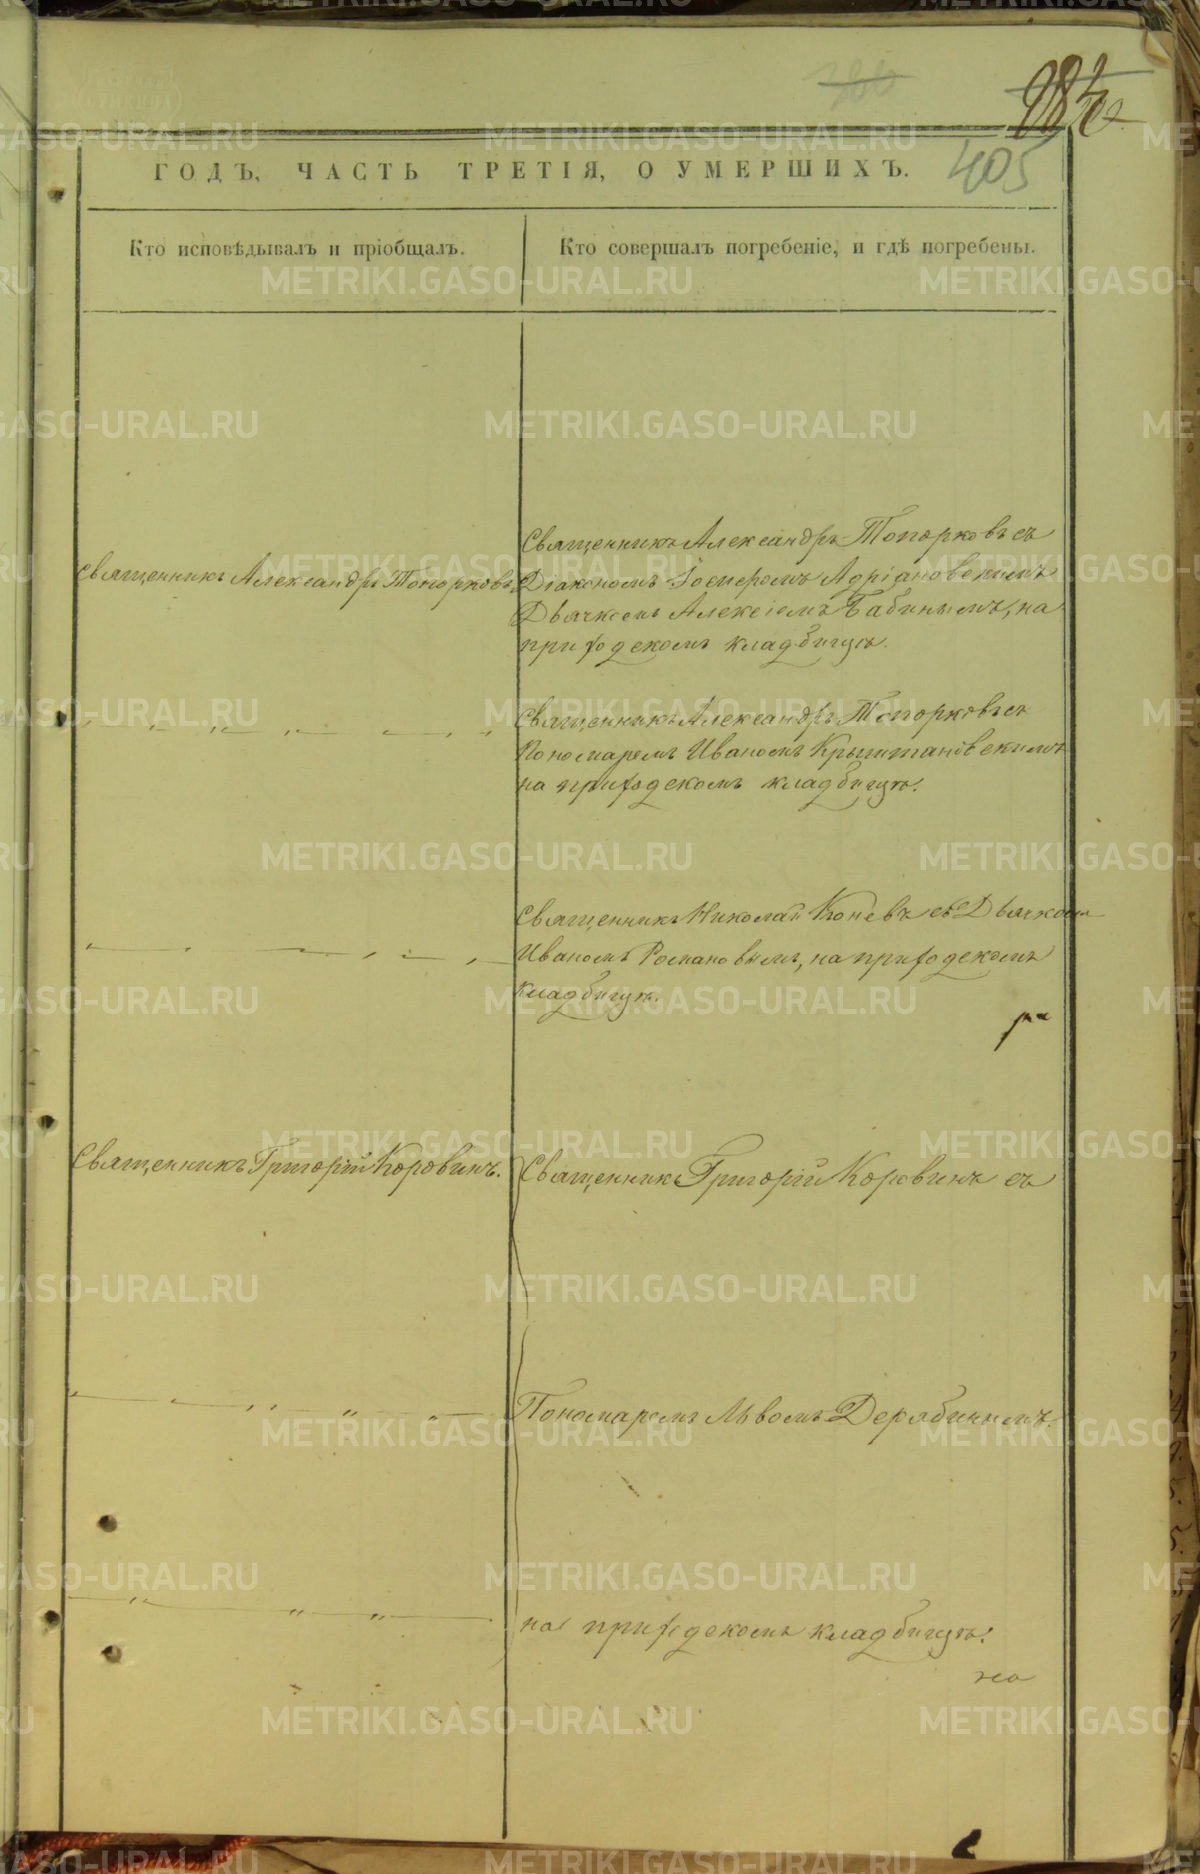 405
ГОДЪ, ЧАСТЬ ТРЕТІЯ, О УМЕРШИХЪ.
Кто исповѣдывалъ и пріобщалъ.
Кто совершалъ погребеніе, и гдѣ погребены.
Священникъ Александръ Топорковъ
Священникъ Александръ Топорковъ съ
Діакономъ Адріановскимъ
Дьячкомъ Алексіемъ Бабинымъ, на
приходскомъ кладбищѣ.
Священникъ Александръ Топорковъ съ
Пономаремъ Иваномъ Крыштановскимъ
на приходскомъ кладбищѣ.
Священникъ Николай Коневъ съ Дьячкомъ
Иваномъ Романовымъ, на приходскомъ
кладбищѣ.
Священникъ Григорій Коровинъ.
Священникъ Григорій Коровинъ съ
Пономаремъ Львомъ Дерябинымъ
на приходскомъ кладбищѣ.
METRIKI.GASO-URAL.RU